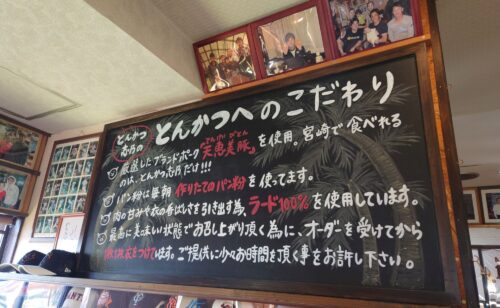 とんかつ
志乃の
とんかつへのこだわり
厳選したブランドポーク『天恵美豚』を使用。宮崎で食べれる
のは、とんかつ志乃だけ!!!
パン粉は毎朝 作りたてのパン粉を使ってます。
肉の甘みや衣の香ばしさを引き出す為、ラード100%を使用しています。
最高に美味しい状態でお召し上がり頂く為に、オーダーを受けてから
衣をつけています。ご提供に少々お時間を頂く事をお許し下さい。